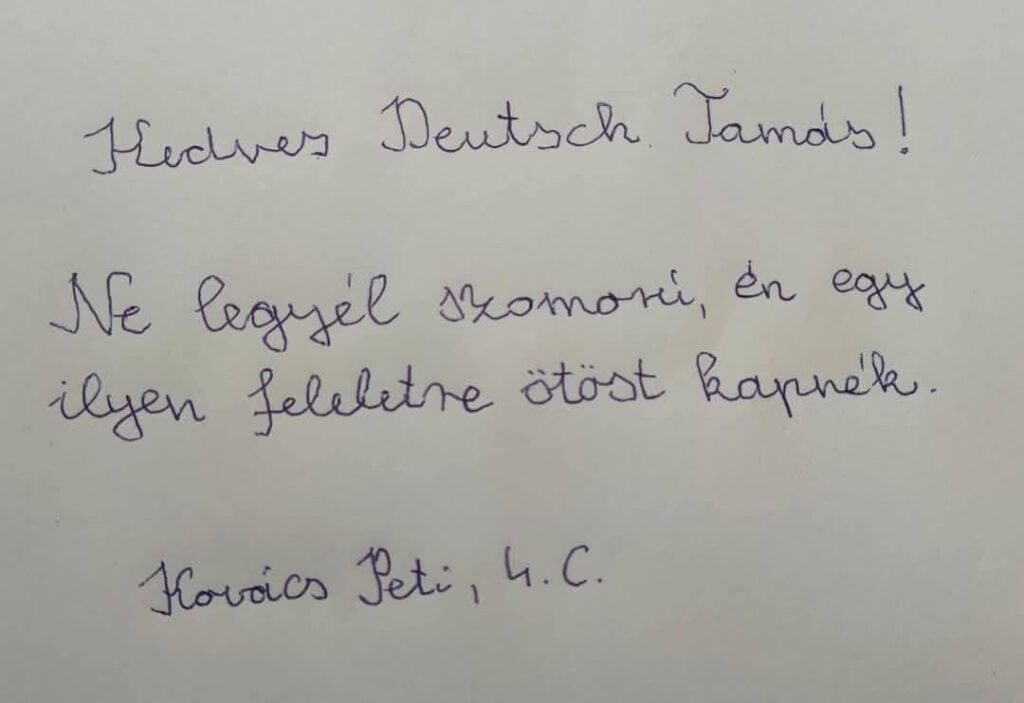 Kedves Deutsch Tamás!
Ne legyél szomorú, én egy
ilyen feleletre ötöst kapnék.
Kovács Peti, 4. C.